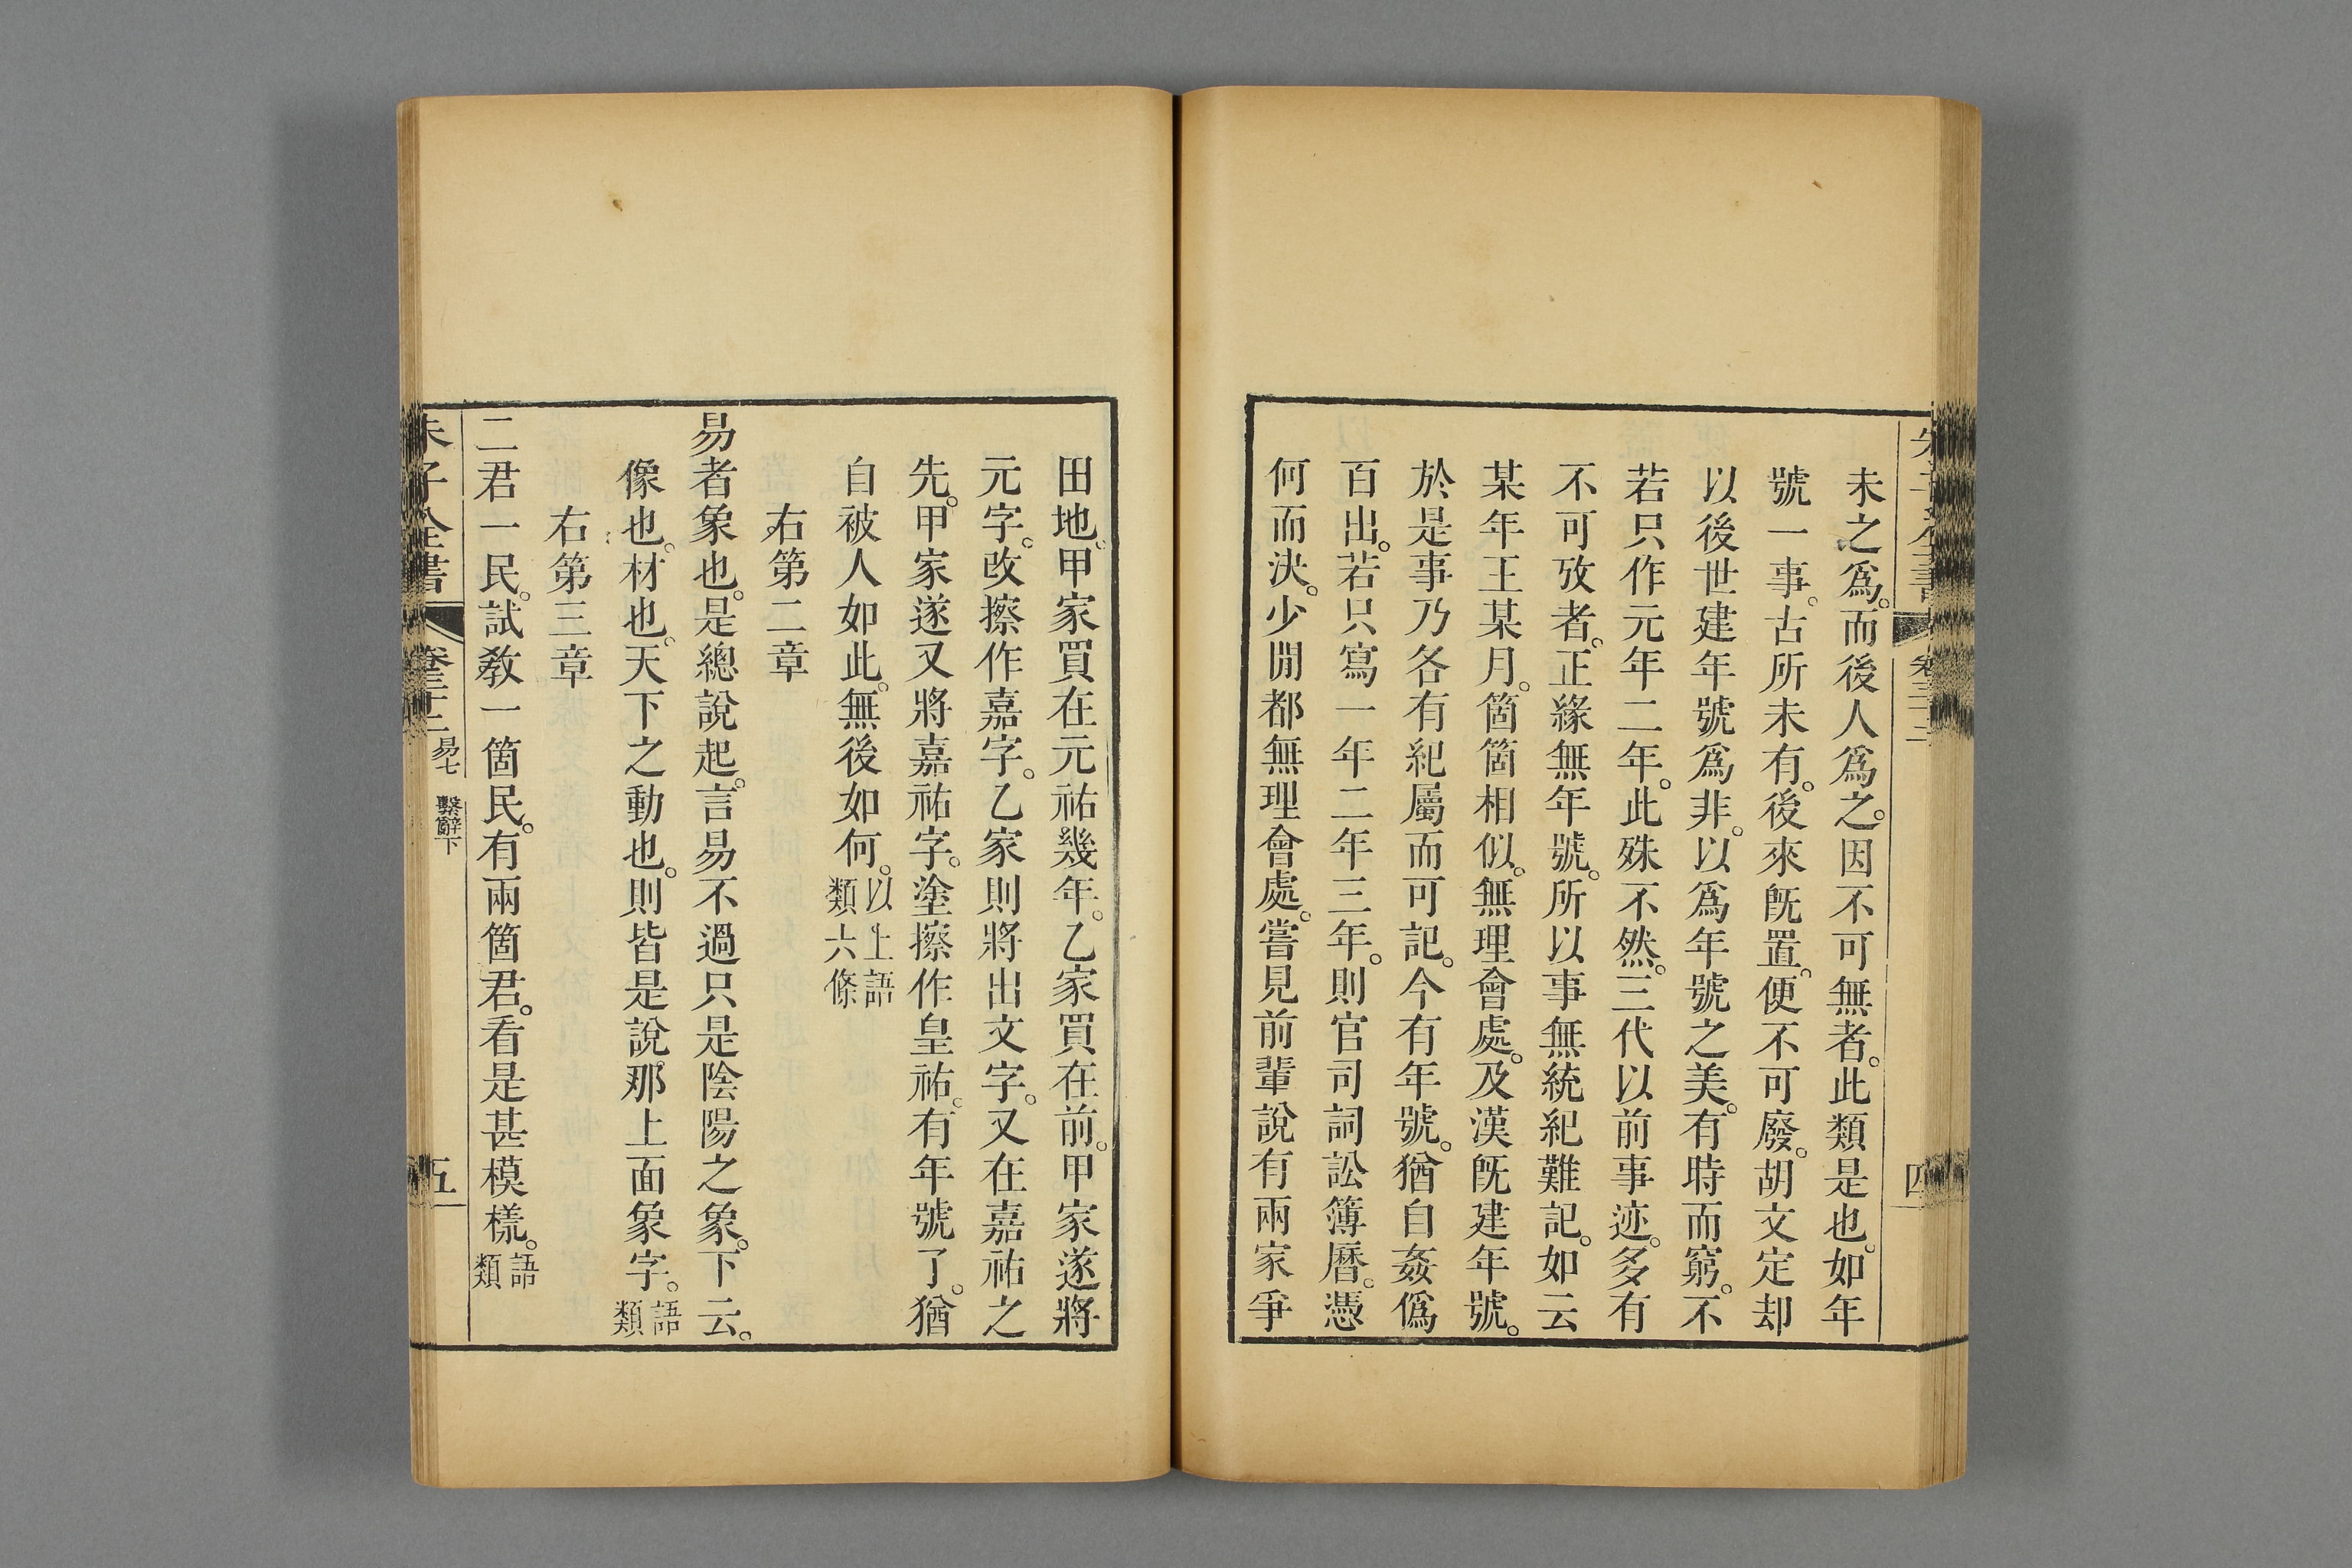 未之爲。而後人爲之。因不可無者。此類是也。如年
號一事。古所未有。後來旣置。便不可廢。胡文定却
以後世建年號爲非。以爲年號之美。有時而窮。不
若只作元年二年。此殊不然。三代以前事迹。多有
不可攷者。正緣無年號。所以事無統紀難記。如云
某年王某月。箇箇相似。無理會處。及漢旣建年號。
於是事乃各有紀屬而可記。今有年號。猶自姦僞
百出。若只寫一年二年三年。則官司詞訟簿曆。憑
何而決。少閒都無理會處。嘗見前輩說有兩家爭
田地。甲家買在元祐幾年。乙家買在前。甲家遂將
元字。改擦作嘉字。乙家則將出文字。又在嘉祐之
先。甲家遂又將嘉祐字。塗擦作皇祐。有年號了。猶
自被人如此。無後如何。以上語類六條
右第二章
易者象也。是總說起。言易不過只是陰陽之象。下云。
像也。材也。天下之動也。則皆是說那上面象字。語類
右第三章
二君一民。試敎一箇民。有兩箇君。看是甚模樣。語類
朱子全書
卷三十二
易七
繫辭下
五